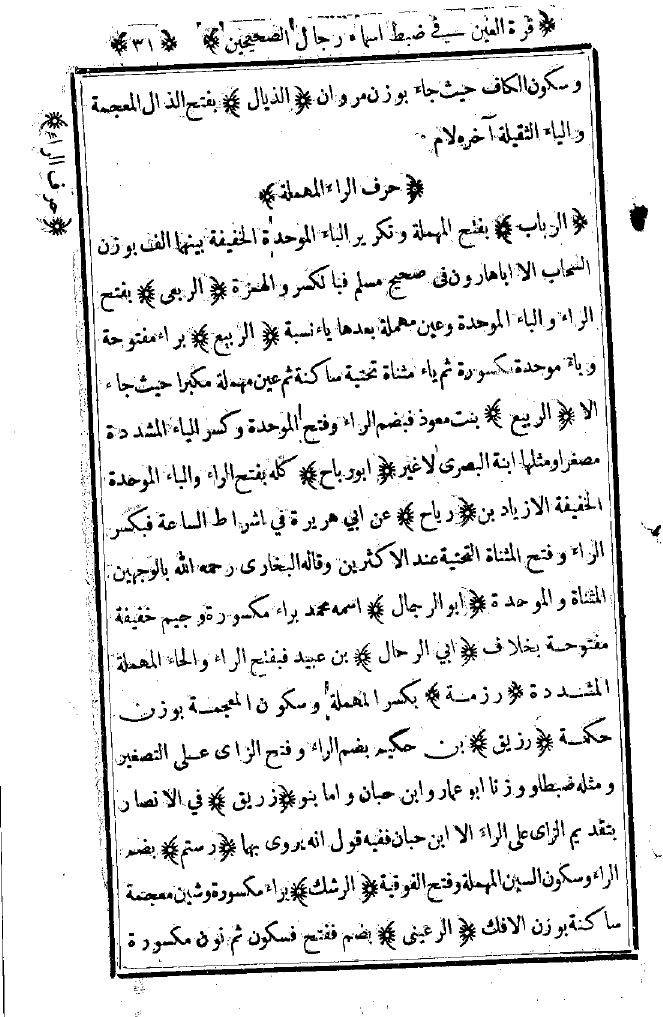 ﴿ قرة العين في ضبط اسماء رجال الصحيحين ﴾ ﴿ ٣١ ﴾
وسكون الكاف حيث جاء بوزن مروان ﴿ الذيال ﴾ بفتح الذال المعجمة
والياء الثقيلة آخره لام
﴿ حرف الراء ﴾
﴿ حرف الراء المهملة ﴾
﴿ الرباب ﴾ بفتح المهملة وتكرير الباء الموحدة الخفيفة بينهما الف بوزن
السحاب الا اباهارون في صحيح مسلم فبالكسر والهمزة ﴿ الربعى ﴾ بفتح
الراء والباء الموحدة وعين مهملة بعدها ياء نسبة ﴿ الربيع ﴾ براء مفتوحة
وباء موحدة مكسورة ثم ياء مثناة تحتية ساكنة ثم عين مهملة مكبرا حيث جاء
الا ﴿ الربيع ﴾ بنت معوذ فبضم الراء وفتح الموحدة وكسر الياء المشددة
مصغرا ومثلها ابنة البصرى لاغير ﴿ ابورباح ﴾ كله بفتح الراء والباء الموحدة
الخفيفة الا زياد بن ﴿ رياح ﴾ عن ابي هريرة في اشراط الساعة فبكسر
الراء وفتح المثناة التحتية عند الاكثرين وقاله البخارى رحمه الله بالوجهين
المثناة والموحدة ﴿ ابو الرجال ﴾ اسمه محمد براء مكسورة وجيم خفيفة
مفتوحة بخلاف ﴿ ابي الرحال ﴾ بن عبيد فبفتح الراء والحاء المهملة
المشددة ﴿ رزمة ﴾ بكسر المهملة وسكون المعجمة بوزن
حكمة ﴿ رزيق ﴾ بن حكيم بضم الراء وفتح الزاى على التصغير
ومثله ضبطا ووزنا ابو عمار وابن حبان واما بنو ﴿ زريق ﴾ في الانصار
بتقديم الزاى على الراء الا ابن حبان ففيه قول انه يروى بها ﴿ رستم ﴾ بضم
الراء وسكون السين المهملة وفتح الفوقية ﴿ الرشك ﴾ براء مكسورة وشين معجمة
ساكنة بوزن الافك ﴿ الرعينى ﴾ بضم ففتح فسكون ثم نون مكسورة